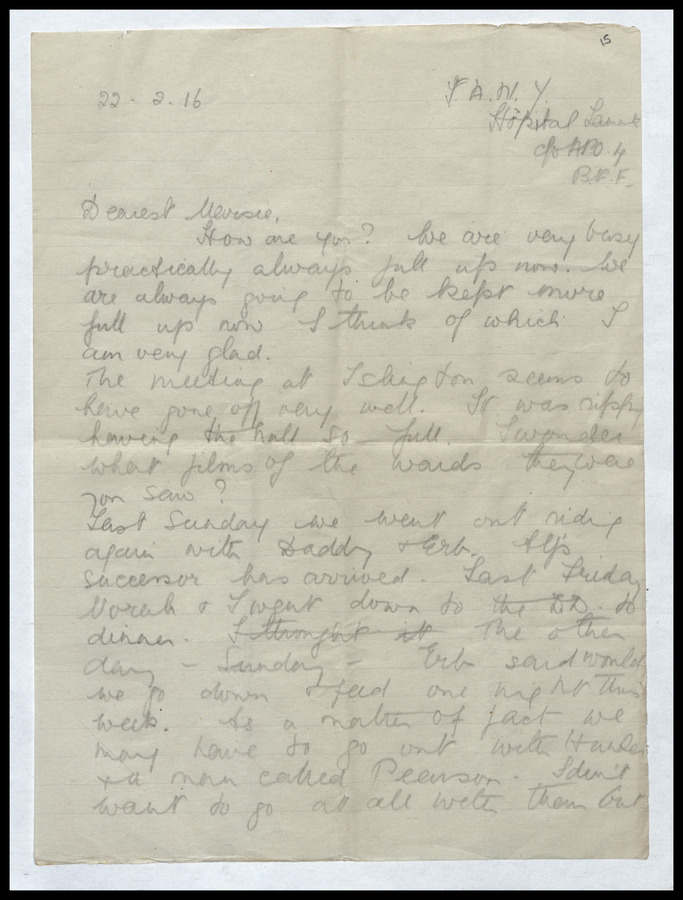 15
22-2-16
F.A.N.Y.
Hôpital Lamark
c/o APO. 4
B.E.F.
Dearest Mousie,
How are you? We are very busy
practically always full up now. We
are always going to be kept more
full up now I think of which I
am very glad.
The meeting at Islington seems to
have gone off very well. It was ripping
having the hall so full. I wonder
what films of the wards they were
you saw?
Last Sunday we went out riding
again with Daddy & Erb. Alf's
successor has arrived. Last Friday
Norah & I went down to the DD. to
dinner. I thought it The other
day - Sunday - Erb said would
we go down & feed one night this
week. As a matter of fact we
may have to go out with
& a man called Pearson. I don't
want to go at all with them but